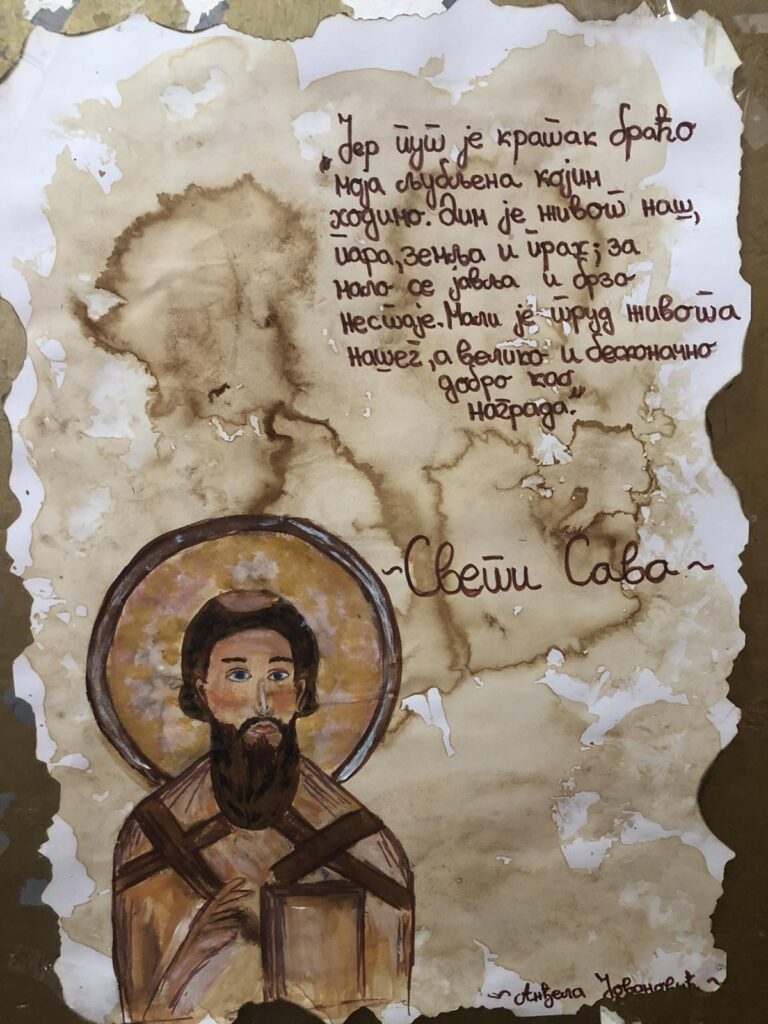 „Јер пут је кратак браћо
моја љубљена којим
ходимо. Дим је живот наш,
пара, земља и прах; за
мало се јавља и брзо
нестаје. Мали је труд живота
нашег, а велико и бесконачно
добро као
награда.”
~Свети Сава~
~Анђела Јовановић~